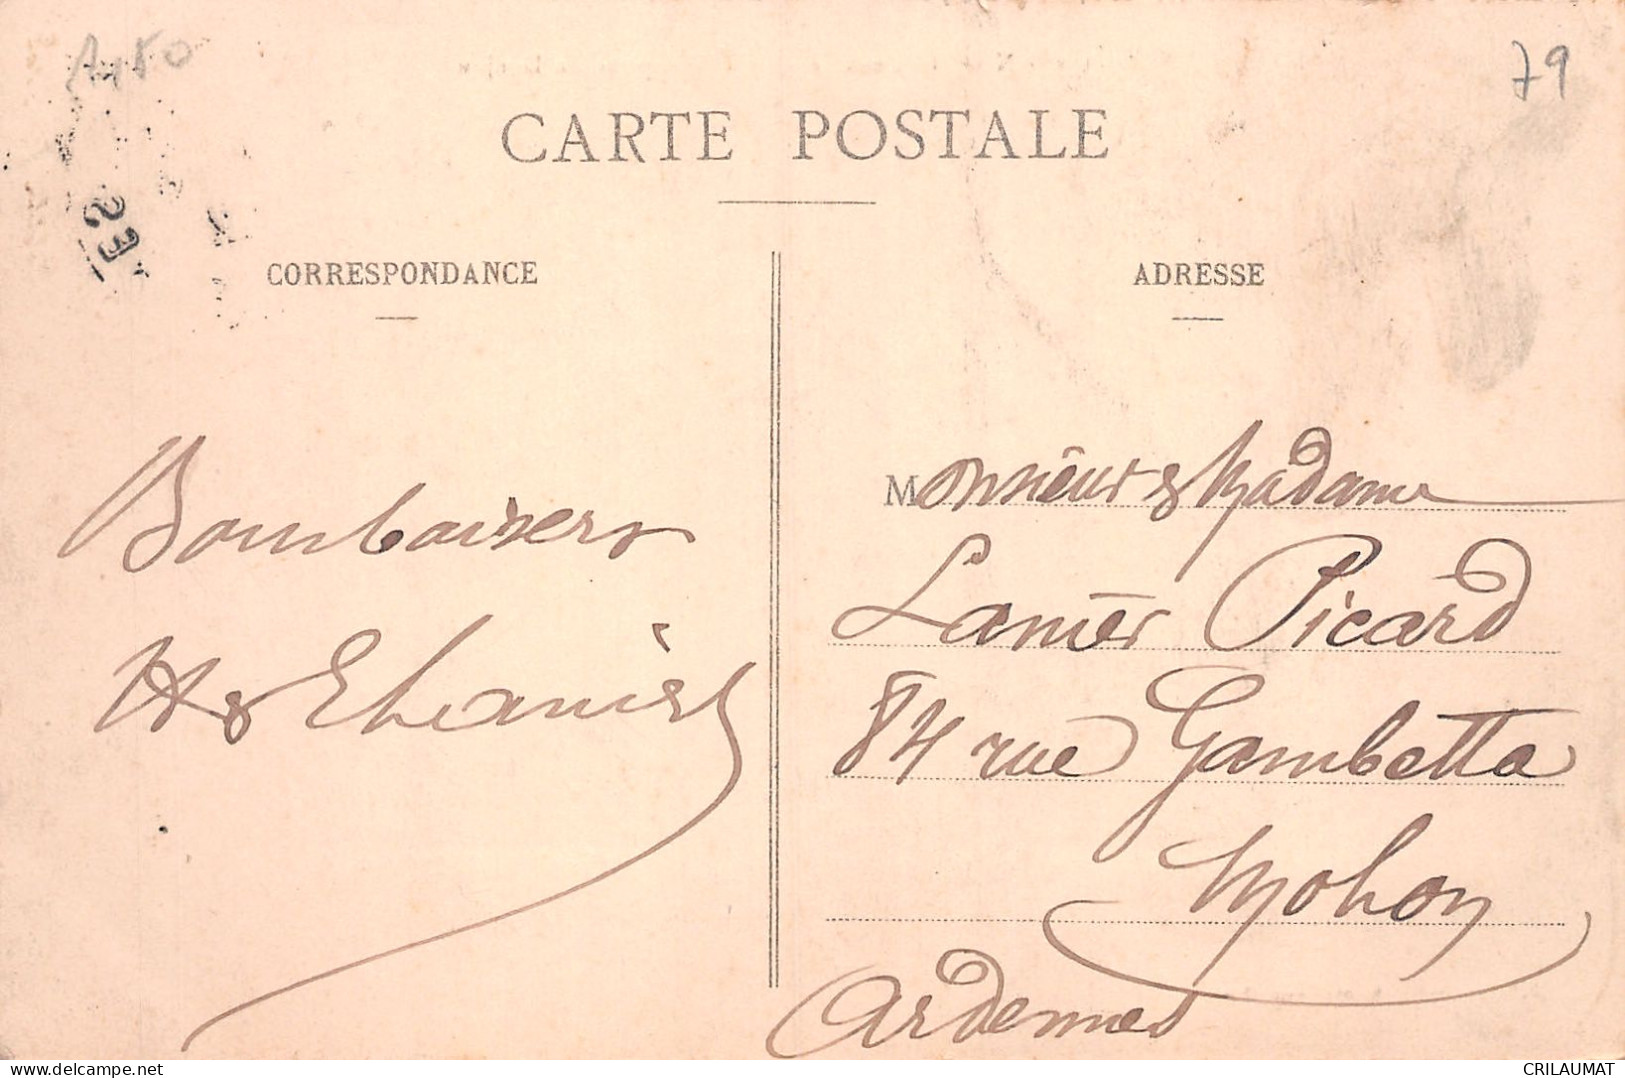 79
CARTE POSTALE
CORRESPONDANCE
ADRESSE
23
Bons baisers
Monsieur & Madame
Lanier Picard
84 rue Gambetta
Mohon
Ardennes
delcampe.net
CRILAUMAT